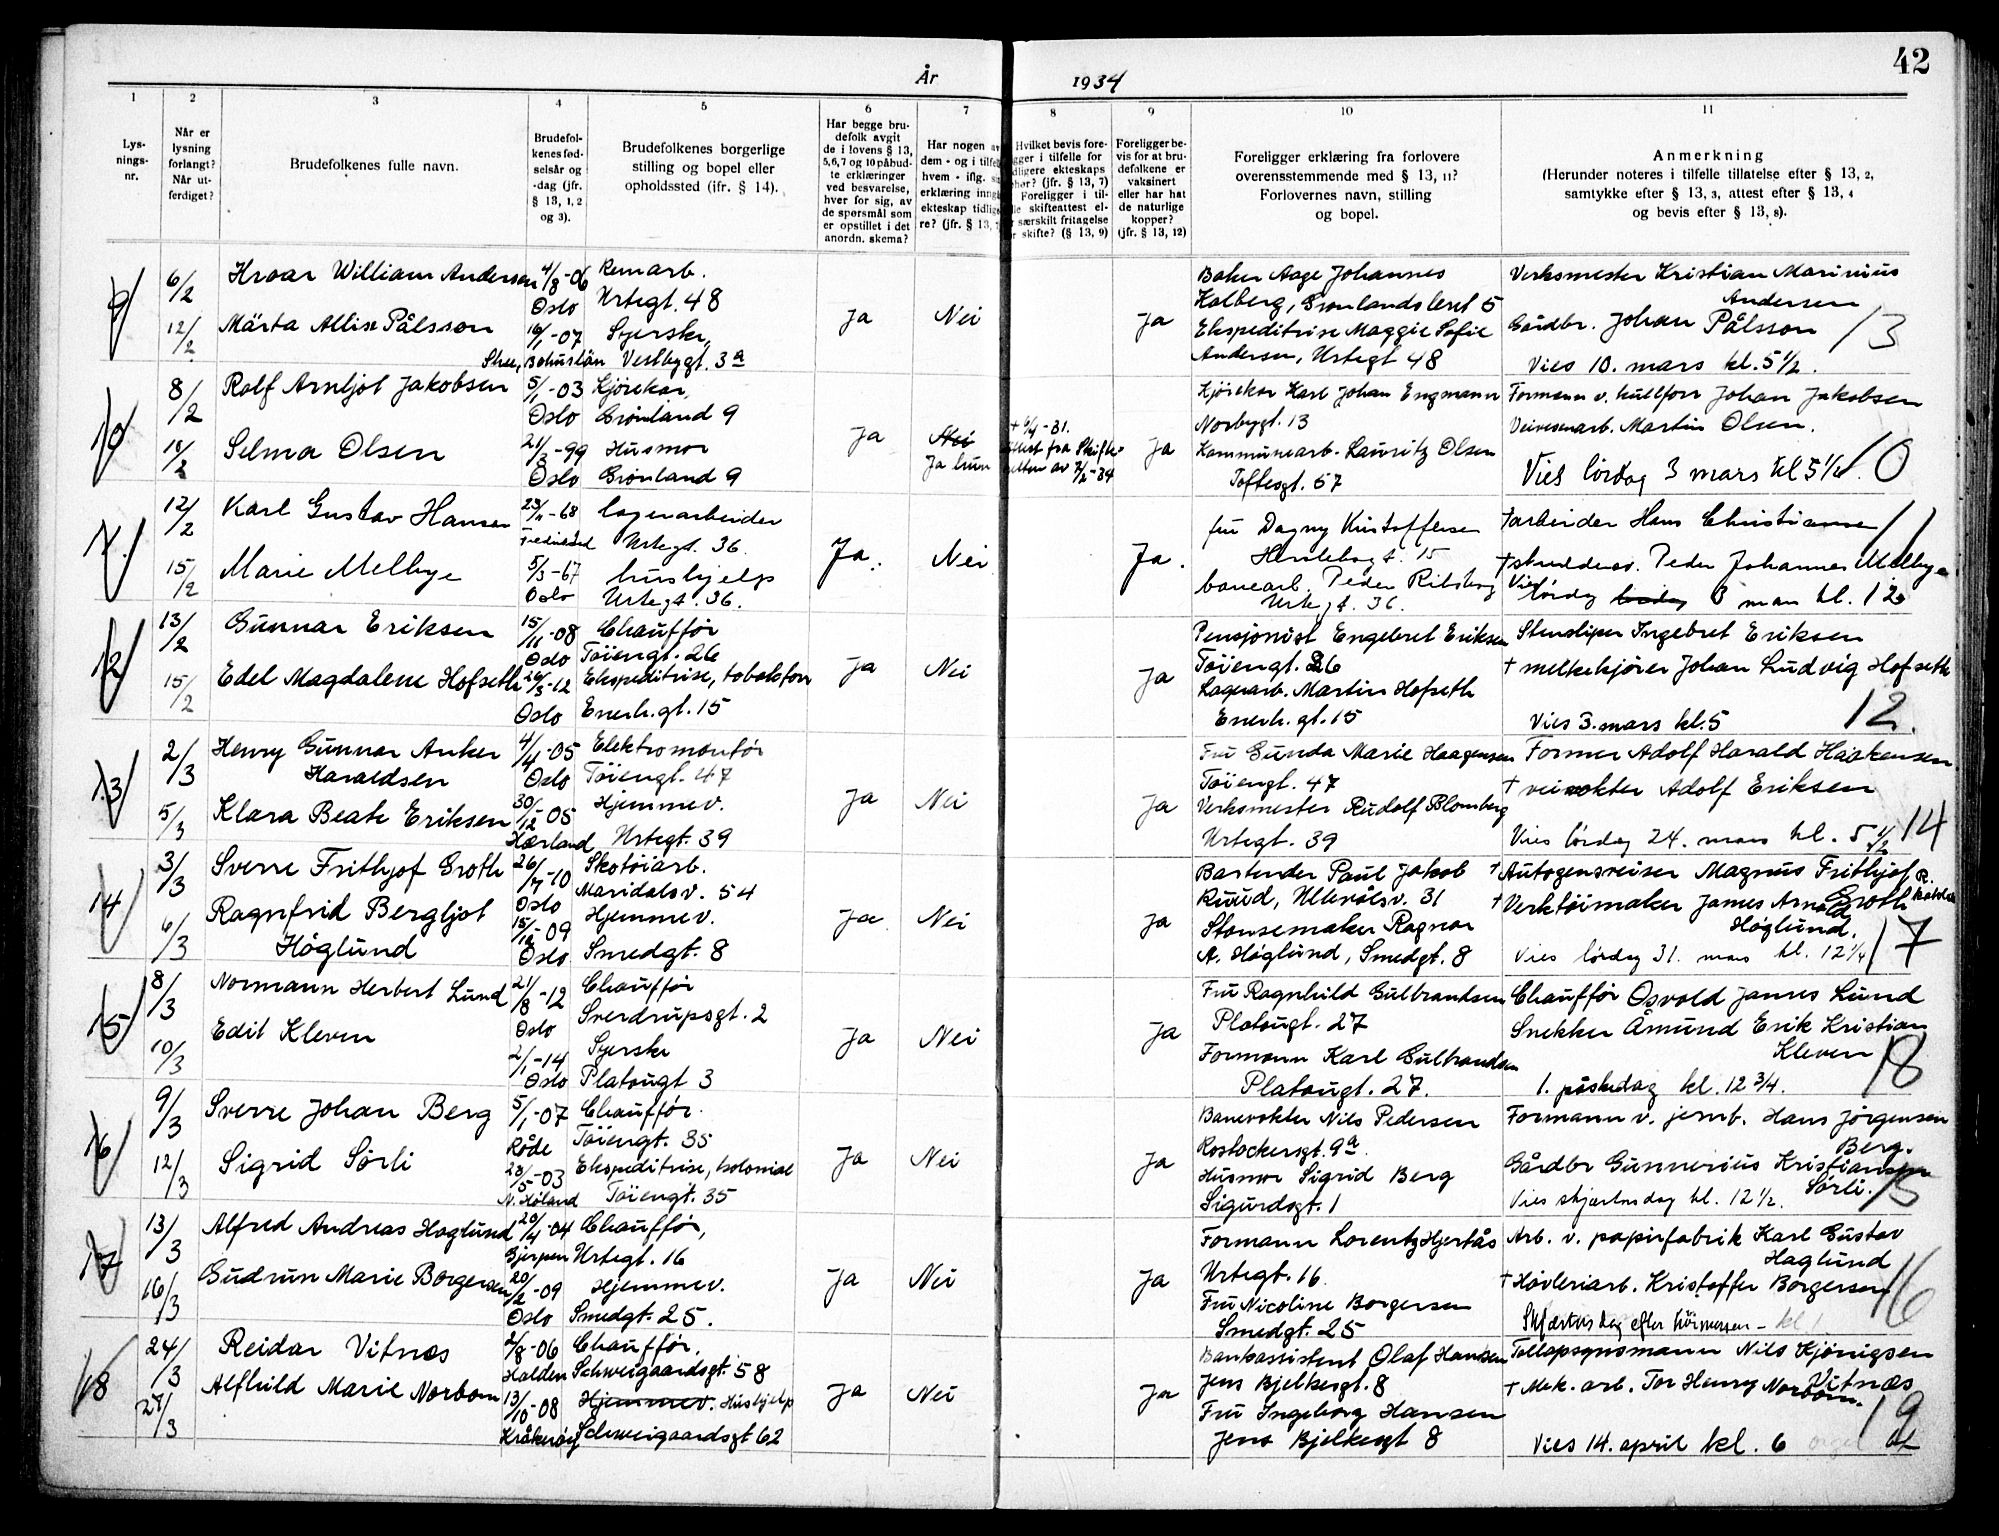 42
År 1934
1
Lys-
nings-
nr.
2
Når er
lysning
forlangt?
Når ut-
ferdiget?
3
Brudefolkenes fulle navn.
4
Brudefol-
kenes fød-
selsår og
-dag (jfr.
§ 13, 1, 2
og 3).
5
Brudefolkenes borgerlige
stilling og bopel eller
opholdssted (jfr. § 14).
6
Har begge bru-
defolk avgit
de i lovens § 13,
5, 6, 7 og 10 påbud-
te erklæringer
ved besvarelse,
hver for sig, av
de spørsmål som
er opstillet i det
anordn. skema?
7
Har nogen a
dem - og i tilfe
hvem - iflg.
erklæring inng
ekteskap tidlig
re? (jfr. § 13,
8
Hvilket bevis fore-
gger i tilfelle for
dligere ekteskaps
hør? (jfr. § 13, 7)
Foreligger i til-
le skifteattest el-
særskilt fritagelse
r skifte? (§ 13, 9)
9
Foreligger be-
vis for at bru-
defolkene er
vaksinert
eller har hat
de naturlige
kopper?
(jfr. § 13, 12)
10
Foreligger erklæring fra forlovere
overensstemmende med § 13, 11?
Forlovernes navn, stilling
og bopel.
11
Anmerkning
(Herunder noteres i tilfelle tillatelse efter § 13, 2,
samtykke efter § 13, 3, attest efter § 13, 4
og bevis efter § 13, 8).
9
6/2
12/2
Hroar William Andersen
4/8-06
Oslo
Remarb.
Urtegt. 48
Märta Allise Pålsson
16/1-07
Skee, Bohuslän
Syerske,
Vestbygt. 3a
Ja
Nei
Ja
Baker Aage Johannes
Holberg, Grønlandsleret 5
Ekspeditrise Maggie Sofie
Andersen, Urtegt 48
Verksmester Kristian Marinius
Andersen
Gårdbr. Johan Pålsson
Vies 10. mars kl. 5 1/2.
13
10
8/2
Rolf Arnljot Jakobsen
5/1-03
Oslo
Kjørekar,
Grønland 9
Selma Olsen
21/3-99
Oslo
Husmor
Grønland 9
Ja
Nei
Ja hun
Attest fra Skifte-
retten av 7/2-34
Ja
Kjørekar Karl Johan Engmann
Norbygt. 13
Kommunearb. Lauritz Olsen
Toftesgt. 57
Formann v. kullforr Johan Jakobsen
Veivesenarb. Martin Olsen.
Vies lördag 3 mars kl 5 1/2.
10
11
12/2
15/2
Karl Gustav Hansen
23/11-68
Fredrikstad
lagerarbeider
Urtegt. 36
Marie Melbye
5/3-67
Oslo
hushjelp
Urtegt. 36.
Ja.
Nei
Ja.
fru Dagny Kristoffersen
banearb. Peder
Urtegt. 36.
† arbeider Hans Christiansen
† Peder Johannes Melbye
Vies lördag 3 mars kl. 12
11
12
13/2
15/2
Gunnar Eriksen
15/11-08
Oslo
Chauffør
Tøiengt. 26
Edel Magdalene Hofseth
26/3-12
Oslo
Ekspeditrise, tobakforr
Enerh.gt. 15
Ja
Nei
Ja
Pensjonist Engebret Eriksen
Tøiengt. 26
Lagerarb. Martin Hofseth
Enerh.gt. 15
Stensliper Ingebret Eriksen
† melkekjører Johan Ludvig Hofseth
Vies 3. mars kl. 5
12.
13
2/3
5/3
Henry Gunnar Anker
Haraldsen
4/4-05
Oslo
Elektromontør
Tøiengt. 47
Klara Beate Eriksen
30/12-05
Hærland
Hjemmev.
Urtegt. 39
Ja
Nei
Ja
Fru Gunda Marie Haagensen
Tøiengt. 47
Verksmester Rudolf Blomberg
Urtegt. 39
Former Adolf Harald Haakensen.
† veivokter Adolf Eriksen
Vies lørdag 24. mars kl. 5 1/2
14
14
3/3
6/3
Sverre Frithjof Groth
26/7-10
Oslo
Skotøiarb.
Maridalsv. 54
Ragnfrid Bergljot
Høglund
15/12-09
Oslo
Hjemmev.
Smedgt. 8
Ja
Nei
Ja
Bartender Paul Jakob
Ruud, Ullevålsv. 31
Stansemaker Ragnar
A. Høglund, Smedgt. 8
† Autogensveiser Magnus Frithjof
Groth
† Verktøimaker James Arnold
Høglund.
Vies lørdag 31. mars kl. 12 1/4
17
15
8/3
10/3
Normann Herbert Lund
21/8-12
Oslo
Chauffør
Sverdrupsgt. 2
Edit Kleven
2/1-14
Oslo
Syerske
Platougt 3
Ja
Nei
Ja
Fru Ragnhild Gulbrandsen
Platougt. 27
Formann Karl Gulbrandsen
Platougt. 27.
Chauffør Osvald James Lund
Snekker Åmund Erik Kristian
Kleven
1. påskedag kl. 12 3/4.
18
16
9/3
12/3
Sverre Johan Berg
5/1-07
Råde
Chauffør.
Tøiengt. 35
Sigrid Sørli
23/5-03
N. Høland
Ekspeditrise, kolonial
Tøiengt. 35
Ja
Nei
Ja
Banevokter Nils Pedersen
Rostockergt. 9a
Husmor Sigrid Berg
Sigurdsgt. 1
Formann v. jernb. Hans Jørgensen
Berg.
Gårdbr Gunnerius Kristiansen
Sørli.
Vies skjærtorsdag kl. 12 1/2.
15
17
13/3
16/3
Alfred Andreas Haglund
20/4-04
Gjerpen
Chauffør,
Urtegt. 16
Gudrun Marie Borgersen
20/2-09
Oslo
Hjemmev.
Smedgt. 25.
Ja
Nei
Ja
Formann Lorentz Hjertås
Urtegt. 16.
Fru Nicoline Borgersen
Smedgt. 25
Arb. v. papirfabrik Karl Gustav
Haglund
† Høvleriarb. Kristoffer Borgersen
Skjærtorsdag efter höimessen - kl 1
16
18
24/3
27/3
Reidar Vitnæs
2/8-06
Halden
Chauffør,
Schweigaardsgt. 58
Alfhild Marie Norbom
13/10-08
Kråkerøy
Hjemmev. Hushjelp
Schweigaardsgt 62
Ja
Nei
Ja
Bankassistent Olaf Hansen
Jens Bjelkesgt. 8
Fru Ingeborg Hansen
Jens Bjelkesgt 8
Tollopsynsmann Nils Kjønigsen
Vitnæs
† Mek. arb. Tor Henry Norbom.
Vies 14. april kl. 6
19